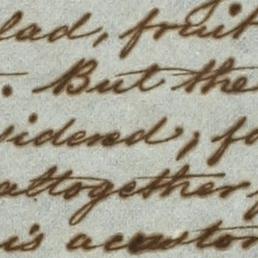 lad, fruit
. But the
sidered, fo
altogether,
is accustom